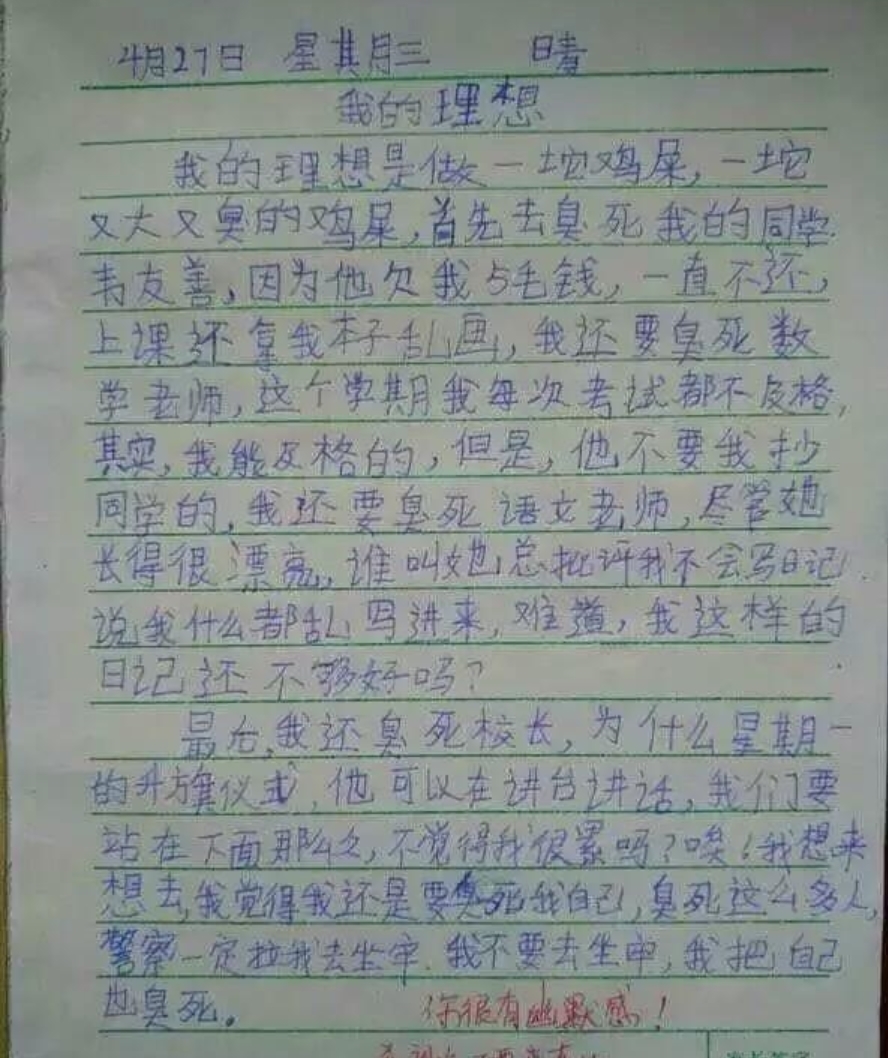 4月27日 星其月三 晴
我的理想
我的理想是做一坨鸡屎,一坨
又大又臭的鸡屎,首先去臭死我的同学
韦友善,因为他欠我5毛钱,一直不还,
上课还拿我本子乱画,我还要臭死数
学老师,这个学期我每次考试都不及格,
其实,我能及格的,但是,他不要我抄
同学的,我还要臭死语文老师,尽管她
长得很漂亮,谁叫她总批评我不会写日记
说我什么都乱写进来,难道,我这样的
日记还不够好吗?
最后,我还臭死校长,为什么星期一
的升旗仪式,他可以在讲台讲话,我们要
站在下面那么久,不觉得我很累吗?唉!我想来
想去,我觉得我还是要臭死我自己,臭死这么多人,
警察一定拉我去坐牢.我不要去坐牢,我把自己
也臭死。
你很有幽默感!